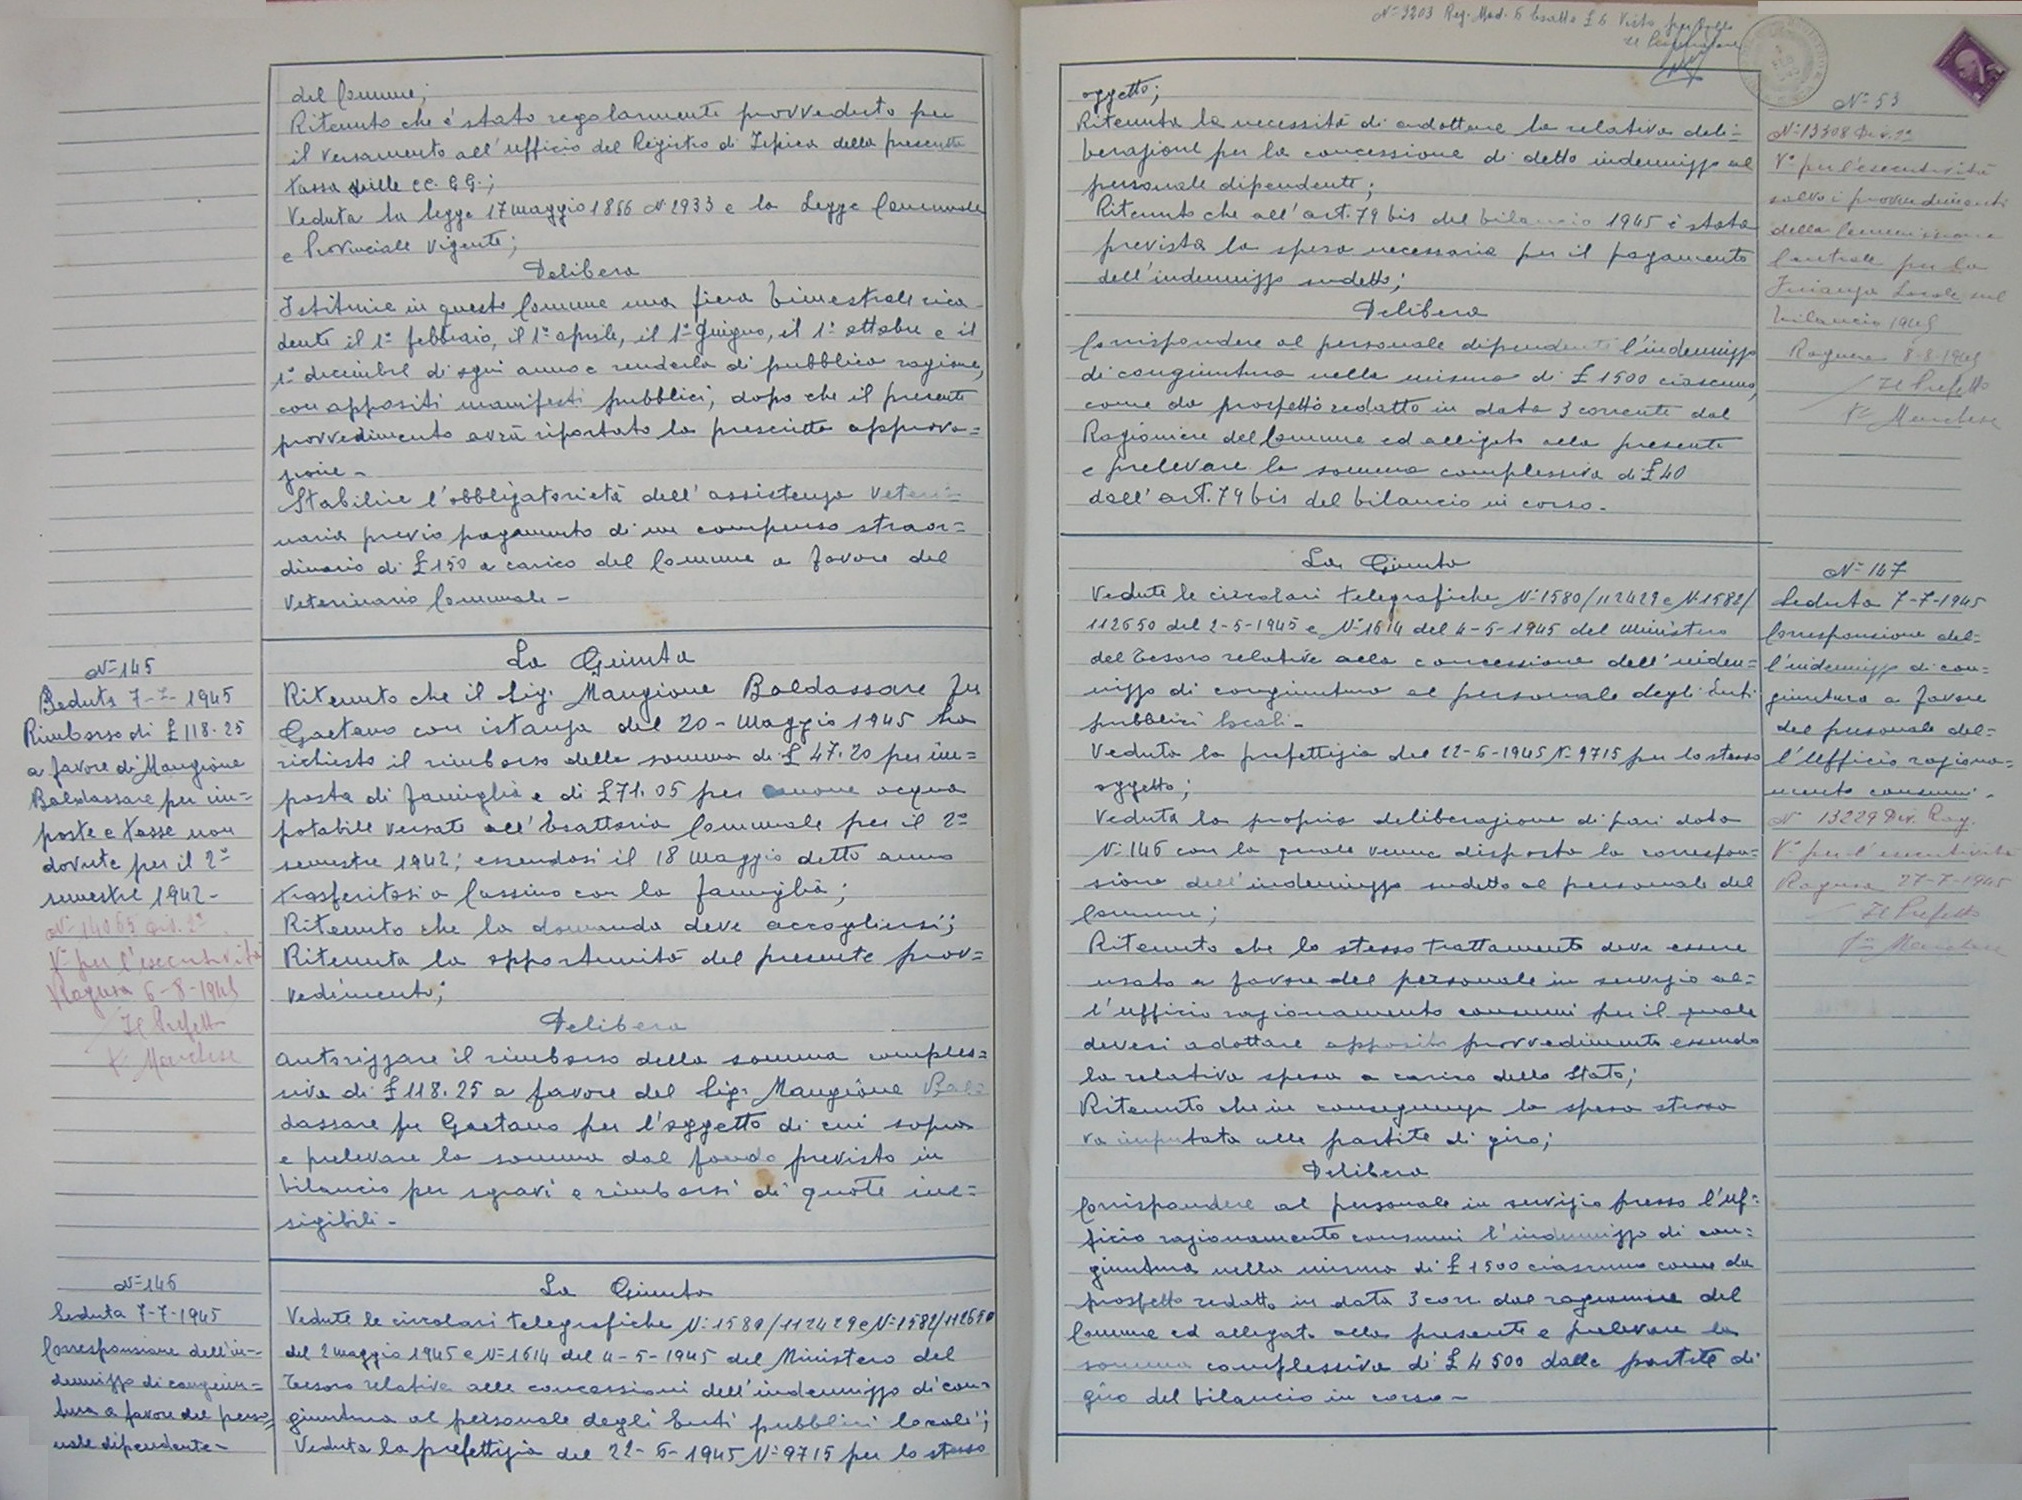 del Comune;
Ritenuto che è stato regolarmente provveduto per
il versamento all'ufficio del Registro di Ispica della presente
tassa sulle CC. GG.;
Veduta la legge 17 maggio 1866 N. 2933 e la Legge Comunale
e Provinciale vigente;
Delibera
Istituire in questo Comune una fiera bimestrale rica-
dente il 1° febbraio, il 1° aprile, il 1° Giugno, il 1° ottobre e il
1° dicembre di ogni anno e renderla di pubblica ragione,
con appositi manifesti pubblici, dopo che il presente
provvedimento avrà riportato la prescritta approva=
zione -
Stabilire l'obbligatorietà dell'assistenza veteri=
naria previo pagamento di un compenso straor=
dinario di £ 150 a carico del Comune a favore del
Veterinario Comunale -
N= 145
Seduta 7-7-1945
Rimborso di £ 118.25
a favore di Mangione
Baldassare per im=
poste e tasse non
dovute per il 2°
semestre 1942-
N= 14065 Div. 2ª
V° per l'esecutività
Ragusa 6-8-1945
Il Prefetto
Marchese
La Giunta
Ritenuto che il Sig. Mangione Baldassare fu
Gaetano con istanza del 20- Maggio 1945 ha
richiesto il rimborso della somma di £ 47.20 per im=
posta di famiglia e di £ 71.05 per canone acqua
potabile versate all'Esattoria Comunale per il 2°
semestre 1942; essendosi il 18 Maggio detto anno
trasferitosi a Cassino con la famiglia;
Ritenuto che la domanda deve accogliersi;
Ritenuta la opportunità del presente prov=
vedimento;
Delibera
autorizzare il rimborso della somma comples=
siva di £ 118.25 a favore del Sig. Mangione Bal=
dassare fu Gaetano per l'oggetto di cui sopra
e prelevare la somma dal fondo previsto in
bilancio per sgravi e rimborsi di quote ine=
sigibili -
N= 146
Seduta 7-7-1945
Corresponsione dell'in=
dennizzo di congiun=
tura a favore del perso=
nale dipendente -
La Giunta
Vedute le circolari telegrafiche N= 1580/112429 e N= 1582/112650
del 2 maggio 1945 e N= 1614 del 4-5-1945 del Ministero del
Tesoro relative alle concessioni dell'indennizzo di con=
giuntura al personale degli Enti pubblici locali;
Veduta la prefettizia del 22-6-1945 N= 9715 per lo stesso
N= 3203 Reg. Mod. 5 Esatte £ 6 Visto per bollo
oggetto;
Ritenuta la necessità di adottare la relativa deli=
berazione per la concessione di detto indennizzo al
personale dipendente;
Ritenuto che all'art. 79 bis del bilancio 1945 è stata
prevista la spesa necessaria per il pagamento
dell'indennizzo sudetto;
Delibera
Corrispondere al personale dipendente l'indennizzo
di congiuntura nella misura di £ 1500 ciascuno,
come da prospetto redatto in data 3 corrente dal
Ragioniere del Comune ed alligato alla presente
e prelevare la somma complessiva di £ 40
dall'art. 79 bis del bilancio in corso.
N= 53
N= 13308 Div. 2ª
V° per l'esecutività
salvo i provvedimenti
della Commissione
Centrale per la
Finanza Locale sul
bilancio 1945
Ragusa 8-8-1945
Il Prefetto
Marchese
La Giunta
Vedute le circolari telegrafiche N= 1580/112429 e N. 1582/
112650 del 2-5-1945 e N= 1614 del 4-5-1945 del Ministero
del Tesoro relative alla concessione dell'inden=
nizzo di congiuntura al personale degli Enti
pubblici locali -
Veduta la prefettizia del 22-6-1945 N. 9715 per lo stesso
oggetto;
Veduta la propria deliberazione di pari data
N= 146 con la quale venne disposta la correspon=
sione dell'indennizzo sudetto al personale del
Comune;
Ritenuto che lo stesso trattamento deve essere
usato a favore del personale in servizio al=
l'ufficio razionamento consumi per il quale
devesi adottare apposito provvedimento essendo
la relativa spesa a carico dello Stato;
Ritenuto che in conseguenza la spesa stessa
va imputata alle partite di giro;
Delibera
Corrispondere al personale in servizio presso l'uf=
ficio razionamento consumi l'indennizzo di con=
giuntura nella misura di £ 1500 ciascuno come da
prospetto redatto in data 3 corr. dal ragioniere del
Comune ed allegato alla presente e prelevare la
somma complessiva di £ 4500 dalle partite di
giro del bilancio in corso -
N= 147
Seduta 7-7-1945
Corresponsione del=
l'indennizzo di con=
giuntura a favore
del personale del=
l'Ufficio raziona=
mento consumi.
N° 13229 Div. Rag.
V° per l'esecutività
Ragusa 27-7-1945
Il Prefetto
Marchese